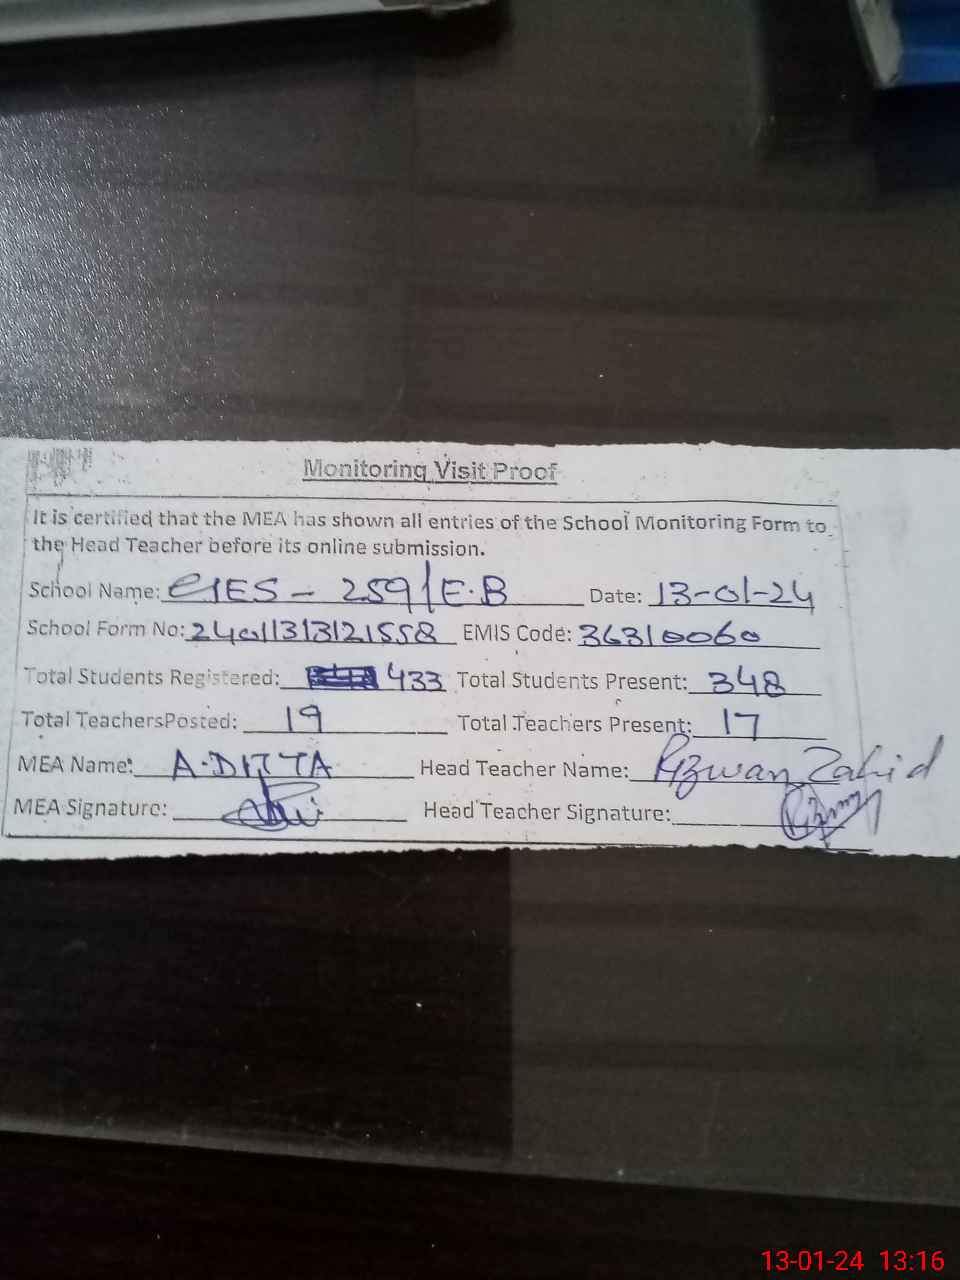 Monitoring Visit Proof
It is certified that the MEA has shown all entries of the School Monitoring Form to
the Head Teacher before its online submission.
School Name: GES - 259/E.B Date: 13-01-24
School Form No: 24011313121558 EMIS Code: 36310060
Total Students Registered: 433 Total Students Present: 348
Total TeachersPosted: 19 Total Teachers Present: 17
MEA Name: A.DITTA Head Teacher Name: Rizwan Zahid
MEA Signature: Head Teacher Signature:
13-01-24 13:16